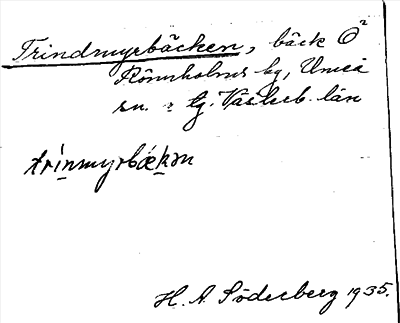 Trindmyrbäcken, bäck Ö²
Rönnholms by, Umeå
sn. o. tg. Västerb. län
tri̱nmyrbæḵən
H. A. Söderberg 1935.